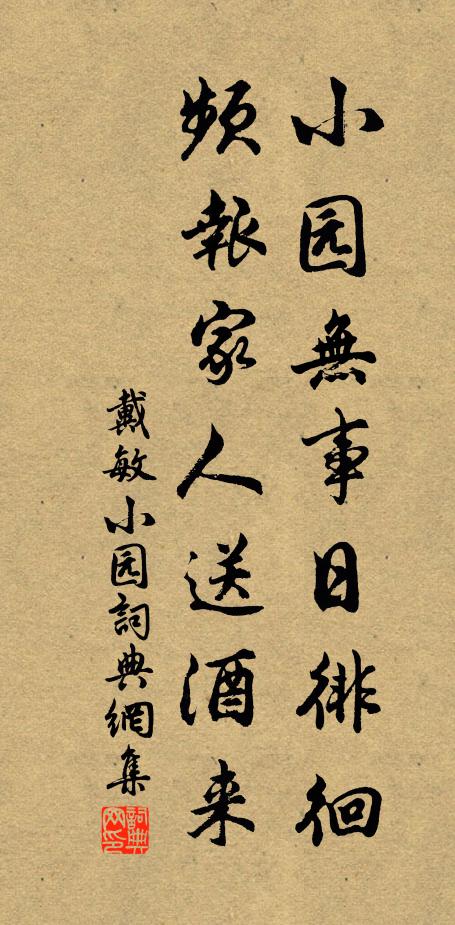 小园無事日徘徊
頻報家人送酒来
戴敏小园詞典網集
詞典网印